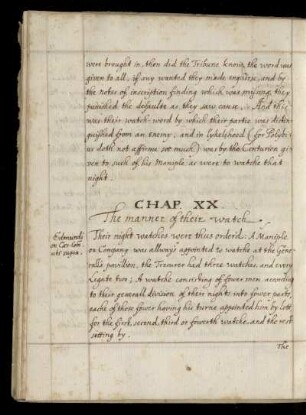 were brought in, then did the Tribune know, the word was
given to all, if any wanted they made enquirie, and by
the notes of inscription finding which was missing they
punished the defaulte as they saw cause. And this
was their watch-word by which their partie was distin-
guished from an enemy, and in lykelehood (for Polybi-
us doth not affirme so much) was by the Centurion giv-
en to such of his Maniple as were to watche that
night.
CHAP. XX
The manner of their watch.
Edmunds
on Caesar
ut supra.
Their night watches were thus orderd. A Maniple
or Company was allways appointed to watche at the Gene-
ralls pavilion, the Treasurer had three watches, and every
Legate two; A watche consisting of fower men according
to their generall division of their nights into fower parts,
eache of these fower having his turne appointed him by lott
for the first, second, third or fowerth watche, and the rest
sitting by.
The